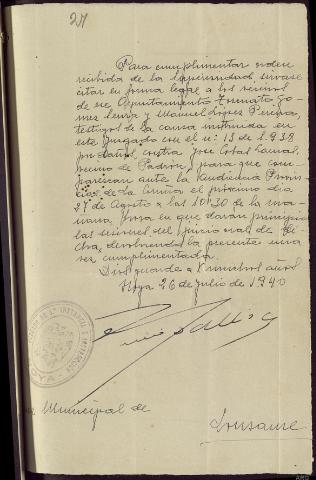 27
Para cumplimentar orden
recibida de la Superioridad, sirvase
citar en forma legal a los vecinos
de ese Ayuntamiento Fortunato Go-
mez Leira y Manuel Lopez Pereira,
testigos de la causa instruida en
este Juzgado con el nº 13 de 1.938
por daños, contra Jose Cobas
vecino de Padrón, para que com-
parezcan ante la Audiencia Provin-
cial de la Coruña el próximo dia
27 de Agosto a las 10'30 de la ma-
ñana, hora en que daran principio
las sesiones del juicio oral de di-
cha, devolviendo la presente una
vez cumplimentada.
Dios guarde a V. muchos años
Noya 26 de julio de 1940
Municipal de
Lousame